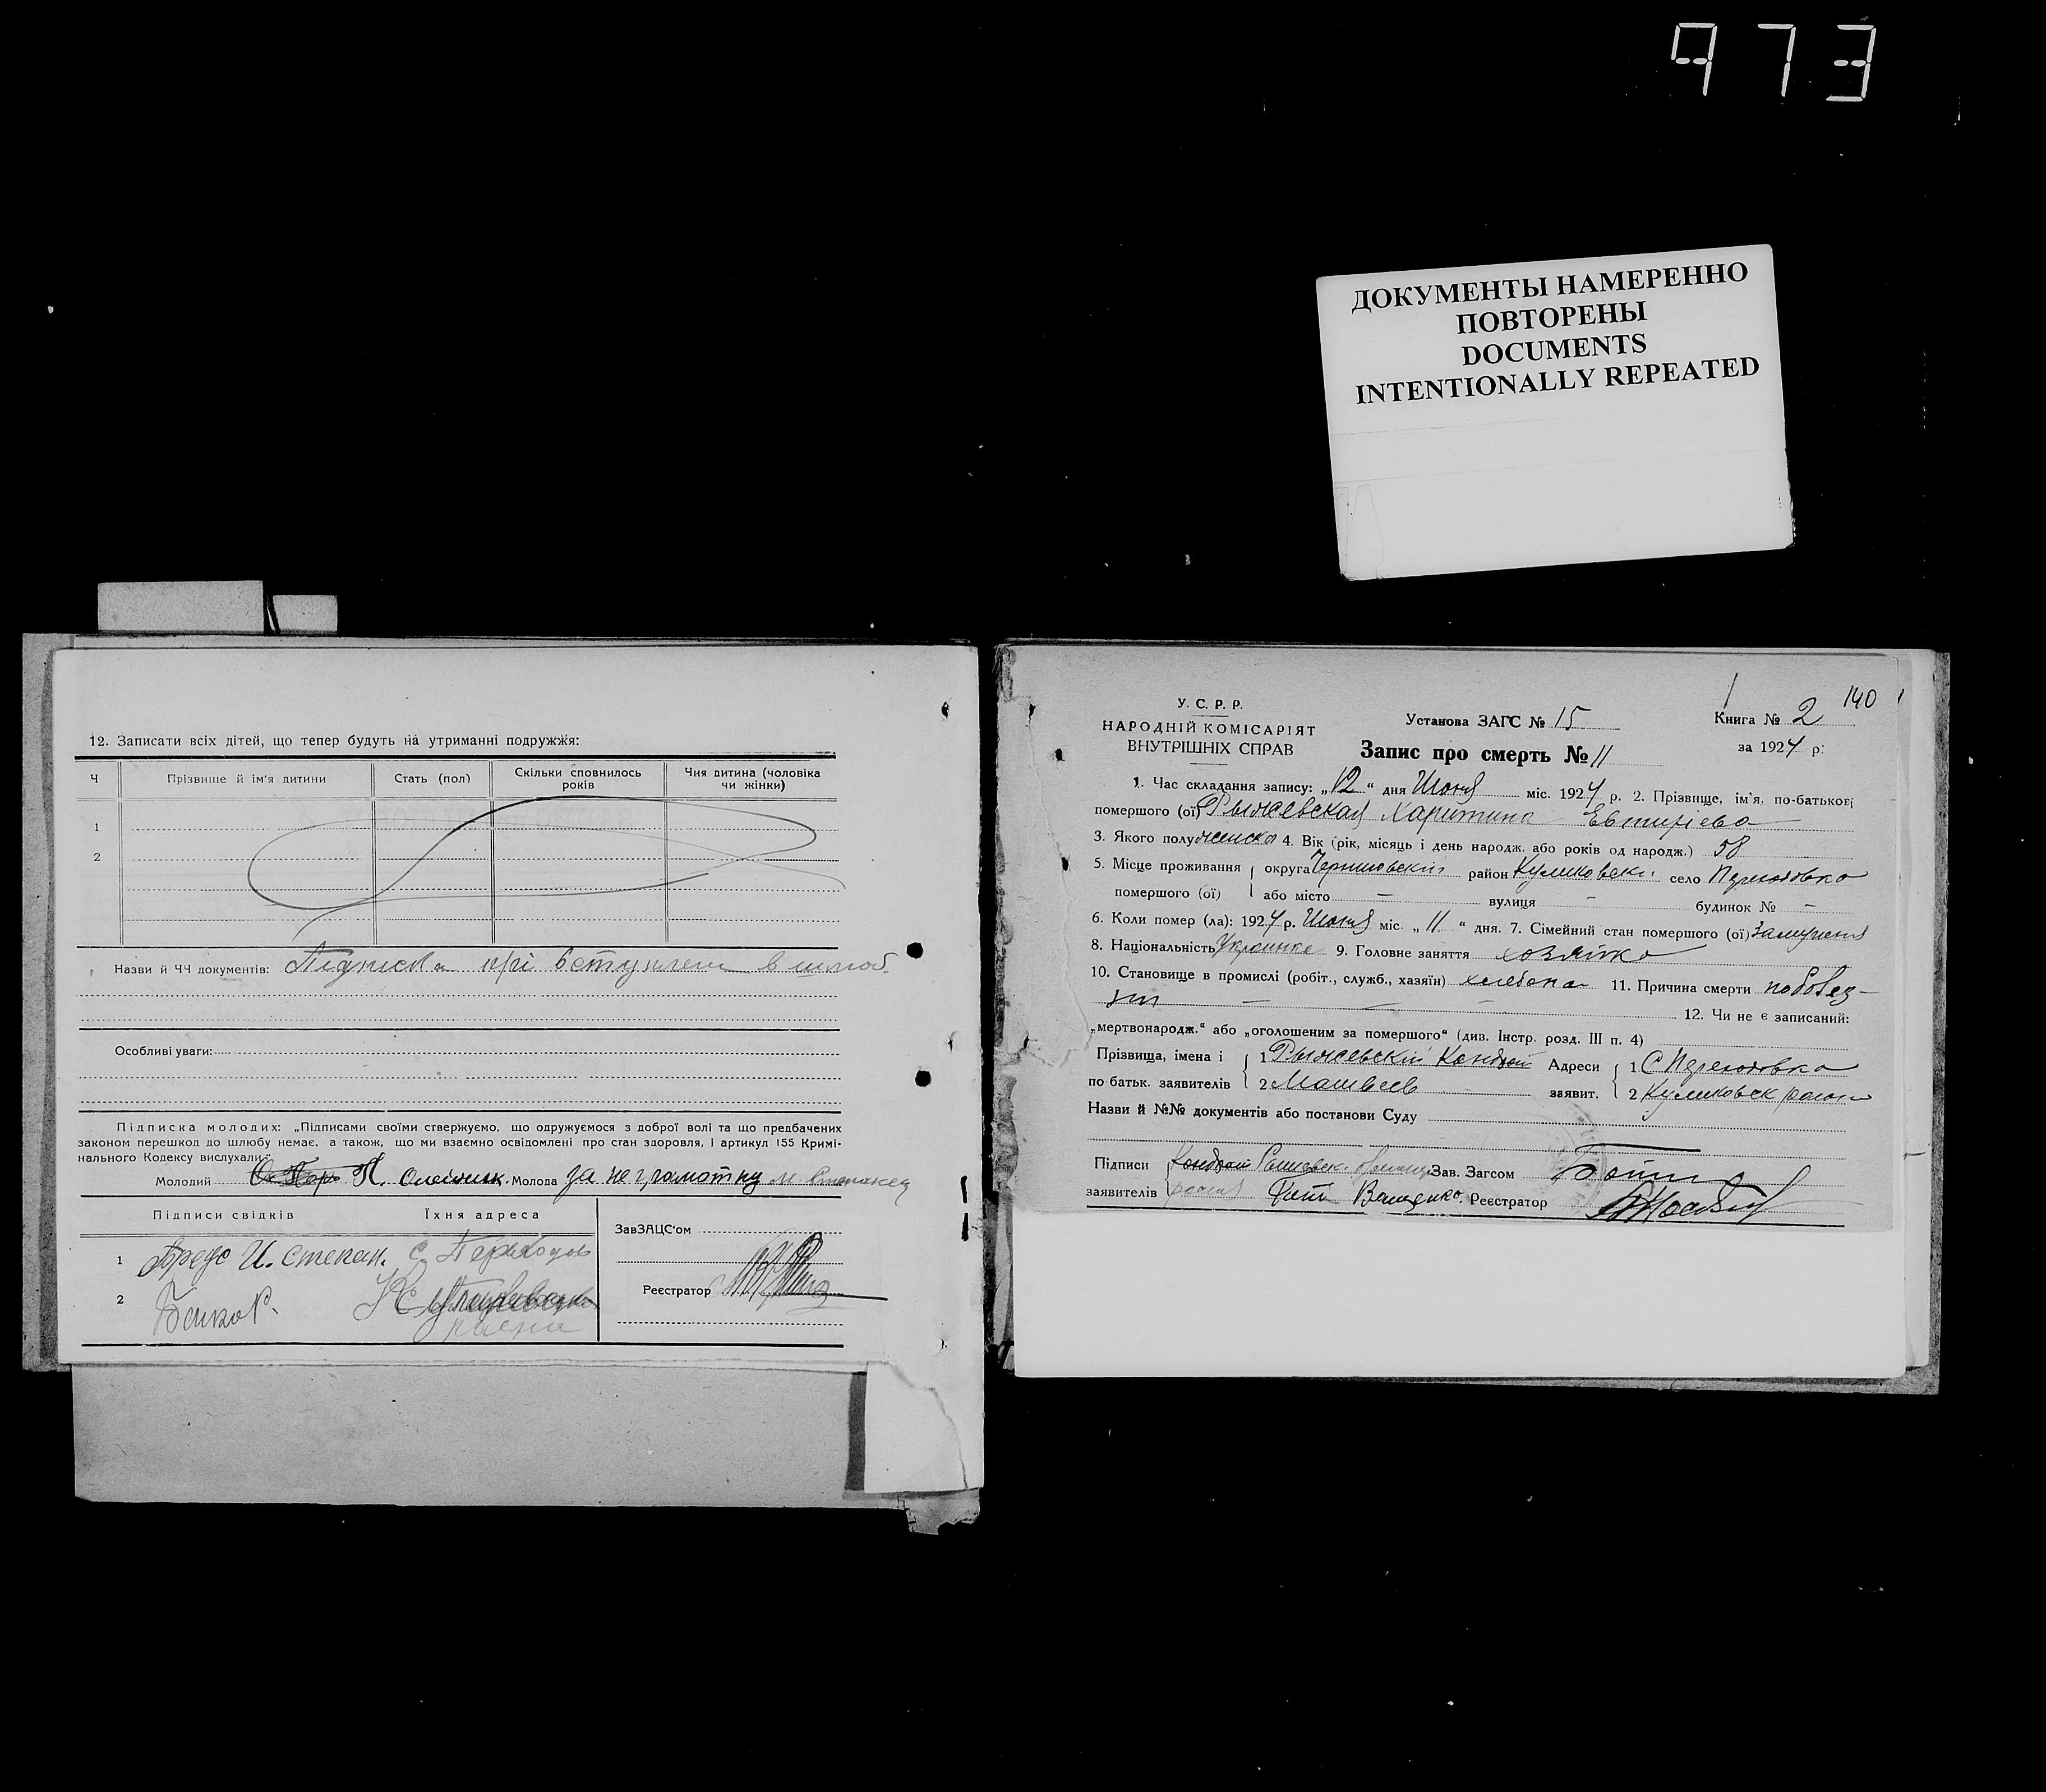 973
ДОКУМЕНТЫ НАМЕРЕННО
ПОВТОРЕНЫ
DOCUMENTS
INTENTIONALLY REPEATED
12. Записати всіх дітей, що тепер будуть на утриманні подружжя:
Ч Прізвище й ім'я дитини Стать (пол) Скільки сповнилось років Чия дитина (чоловіка чи жінки)
1
2
Назви й ЧЧ документів: Підписка прі вступлені в шлюб
Особливі уваги:
Підписка молодих: „Підписами своїми стверджуємо, що одружуємося з доброї волі та що предбачених
законом перешкод до шлюбу немає, а також, що ми взаємно освідомлені про стан здоровля, і артикул 155 Кримі-
нального Кодексу вислухали“
Молодий П. Олейник. Молода за неграмотну
Підписи свідків Їхня адреса
ЗавЗАЦС'ом
1 И. Степан. с.
2
Реєстратор
140
У. С. Р. Р.
НАРОДНІЙ КОМІСАРІЯТ
ВНУТРІШНІХ СПРАВ
Установа ЗАГС № 15
Книга № 2
Запис про смерть № 11
за 1924 р.
1. Час складання запису: „12“ дня Июня міс. 1924 р. 2. Прізвище, ім'я, по-батькові
помершого (ої) Рыжевская Харитина Евтихіева
3. Якого полу женска 4. Вік (рік, місяць і день народж. або років од народж.) 58
5. Місце проживання округа Черниговский район Куликовски село Переходовка
помершого (ої) або місто – вулиця – будинок № –
6. Коли помер (ла): 1924 р. Июня міс. „11“ дня. 7. Сімейний стан помершого (ої) Замужняя
8. Національність Украинка 9. Головне заняття хозяйка
10. Становище в промислі (робіт., служб., хазяїн) 11. Причина смерти
12. Чи не є записаний:
„мертвонародж.“ або „оголошеним за помершого“ (див. Інстр. розд. III п. 4)
Прізвища, імена і 1 Рыжевский Кондрат Адреси 1 С Переходовка
по батьк. заявителів 2 Матвеев заявит. 2 Куликовск района
Назви й №№ документів або постанови Суду
Підписи Кондрат Зав. Загсом
заявителів Ващенко. Реєстратор